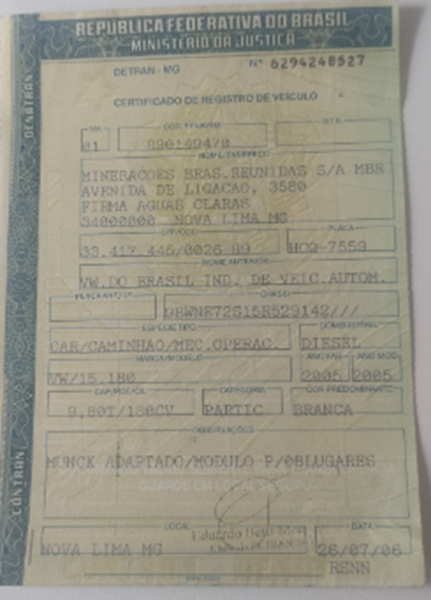 REPÚBLICA FEDERATIVA DO BRASIL
MINISTÉRIO DA JUSTIÇA
DENATRAN
DETRAN - MG Nº 6294248527
CERTIFICADO DE REGISTRO DE VEÍCULO
VIA CÓD. RENAVAM
01 890149470
NOME/ENDEREÇO
MINERACOES BRAS.REUNIDAS S/A MBR
AVENIDA DE LIGACAO, 3580
FIRMA AGUAS CLARAS
34000000 NOVA LIMA MG
CPF/CGC PLACA
33.417.445/0026-89 HCQ-7559
NOME ANTERIOR
VW.DO BRASIL IND. DE VEIC.AUTOM.
PLACA ANT/UF CHASSI
9BWNE72S15R529142///
ESPÉCIE TIPO COMBUSTÍVEL
CAR/CAMINHAO/MEC.OPERAC. DIESEL
MARCA/MODELO ANO FAB. ANO MOD.
VW/15.180 2005 2005
CAP/POT/CIL CATEGORIA COR PREDOMINANTE
9,80T/180CV PARTIC BRANCA
OBSERVAÇÕES
MUNCK ADAPTADO/MODULO P/08LUGARES
CONTRAN
LOCAL DATA
NOVA LIMA MG 26/07/06
RENN